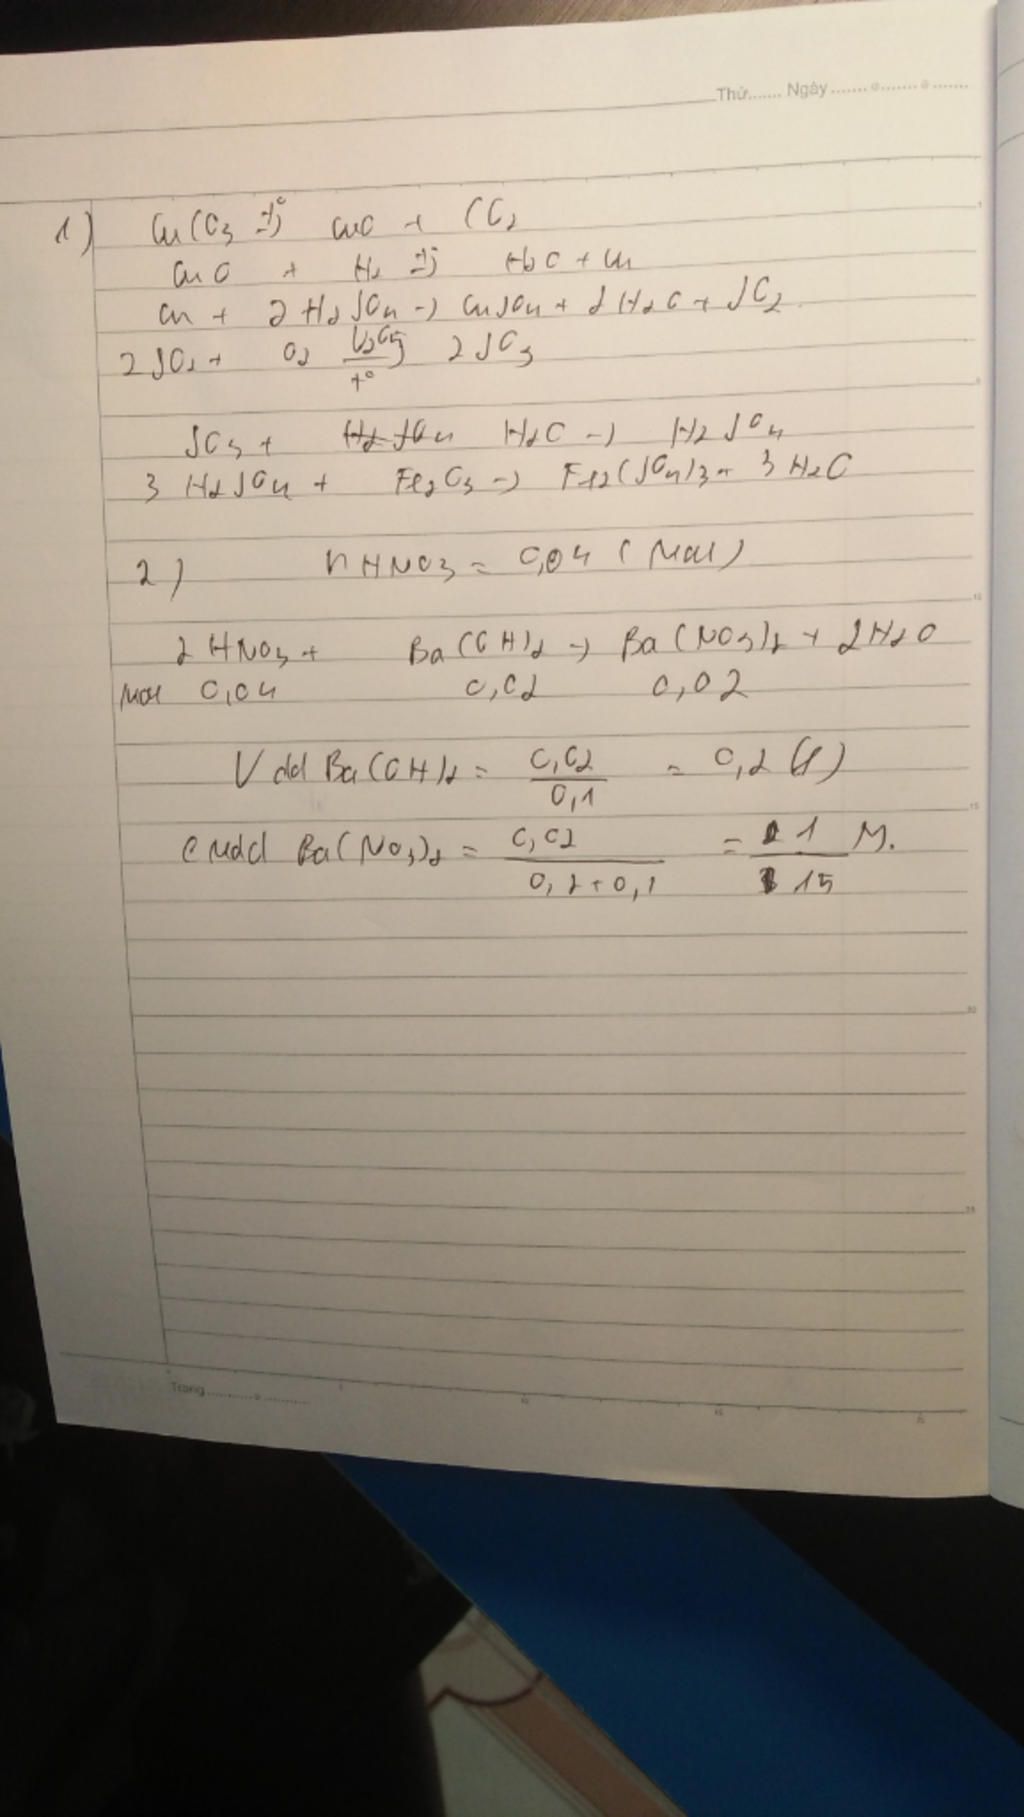 Thứ....... Ngày ....... ....... .......
1) CuCO3 →t° CuO + CO2
CuO + H2 →t° H2O + Cu
Cu + 2H2SO4 → CuSO4 + 2H2O + SO2
2SO2 + O2 →V2O5 t° 2SO3
SO3 + H2O → H2SO4
3H2SO4 + Fe2O3 → Fe2(SO4)3 + 3H2O
2) nHNO3 = 0,04 (mol)
2HNO3 + Ba(OH)2 → Ba(NO3)2 + 2H2O
mol 0,04 0,02 0,02
Vdd Ba(OH)2 = 0,02/0,1 = 0,2 (l)
CMdd Ba(NO3)2 = 0,02/0,2+0,1 = 1/15 M.
Trang